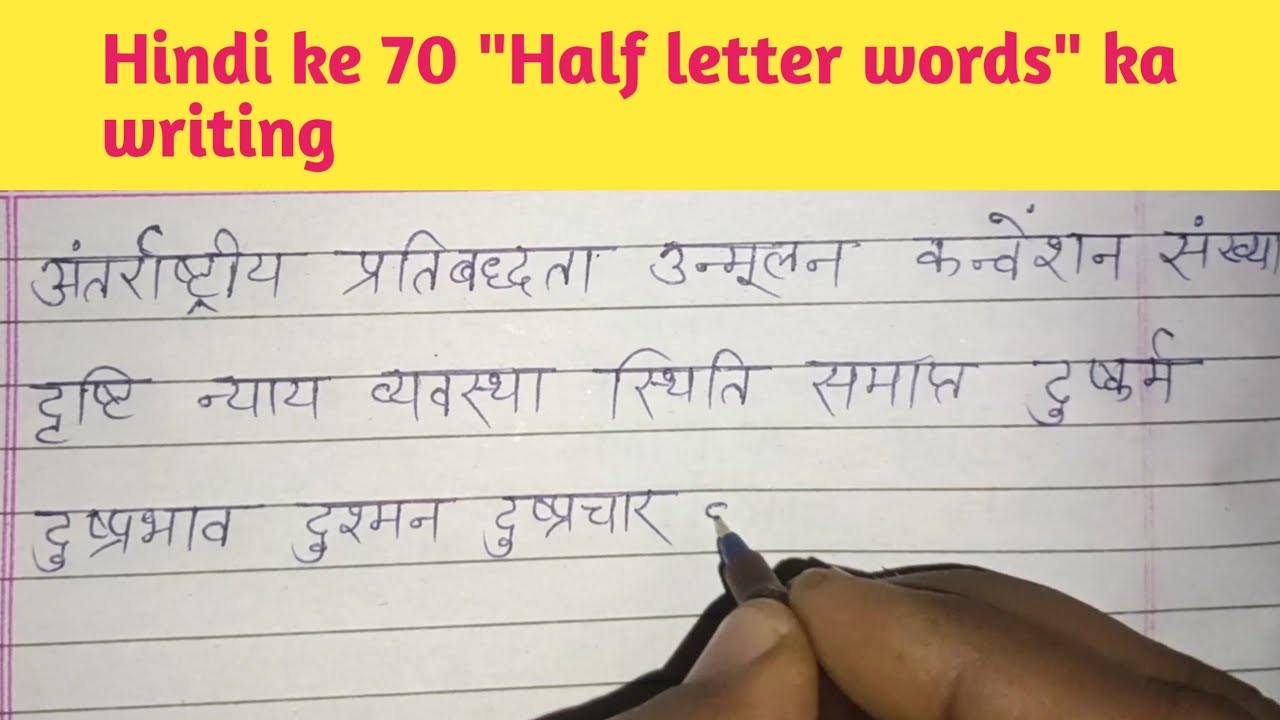 Hindi ke 70 "Half letter words" ka
writing
अंतर्राष्ट्रीय प्रतिबद्धता उन्मूलन कन्वेंशन संख्या
दृष्टि न्याय व्यवस्था स्थिति समाप्त दुष्कर्म
दुष्प्रभाव दुश्मन दुष्प्रचार